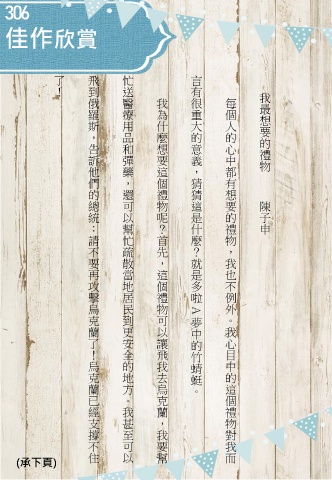 306
佳作欣賞
我最想要的禮物　　陳子申
每個人的心中都有想要的禮物，我也不例外。我心目中的這個禮物對我而
言有很重大的意義，猜猜這是什麼？就是多啦A夢中的竹蜻蜓。
我為什麼想要這個禮物呢？首先，這個禮物可以讓飛我去烏克蘭，我要幫
忙送醫療用品和彈藥，還可以幫忙疏散當地居民到更安全的地方。我甚至可以
飛到俄羅斯，告訴他們的總統：請不要再攻擊烏克蘭了！烏克蘭已經支撐不住
了！
(承下頁)